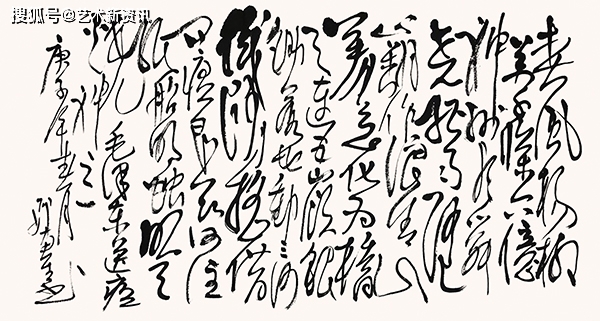 搜狐号@艺术新资讯
春风杨柳
万千条六亿
神州尽舜
尧红雨随心
翻作浪青山
着意化为桥
天连五岭银
锄落地动三河
铁臂摇借
问瘟君欲何往
纸船明烛照天
烧
毛泽东送瘟
神之
庚子年春月